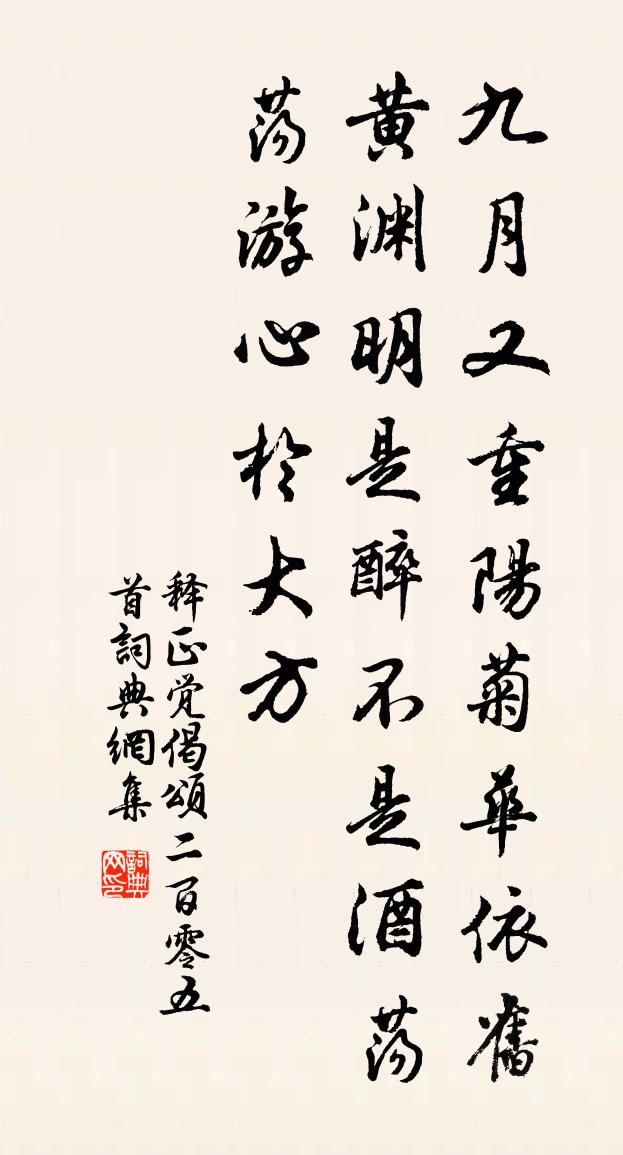 九月又重陽菊華依舊
黄渊明是醉不是酒荡
荡游心於大方
释正觉偈頌二百零五
首詞典網集
詞典网印